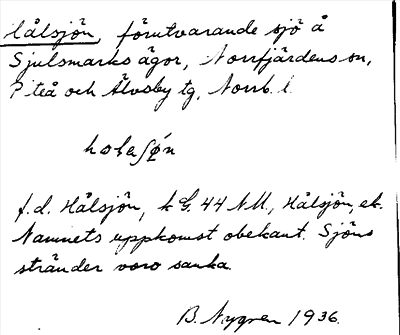 Hålsjön, förutvarande sjö å
Sjulsmarks ägor, Norrfjärdens sn,
Piteå och Älvsby tg, Norrb. l.
f.d. Hålsjön, k 44 NM., Hålsjön, ek.
Namnets uppkomst obekant. Sjöns
stränder voro sanka.
B. Nygren 1936.